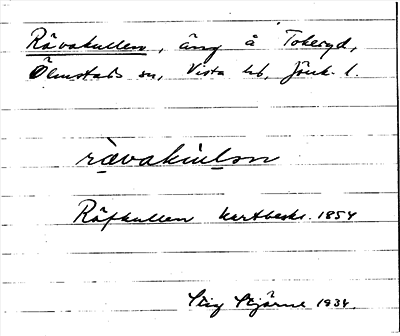 Rävakullen, äng å Tokeryd,
Ölmstads sn, Vista hd, Jönk. l.
Räfkullen kartbeskr. 1854
Stig Stjärne 1934.